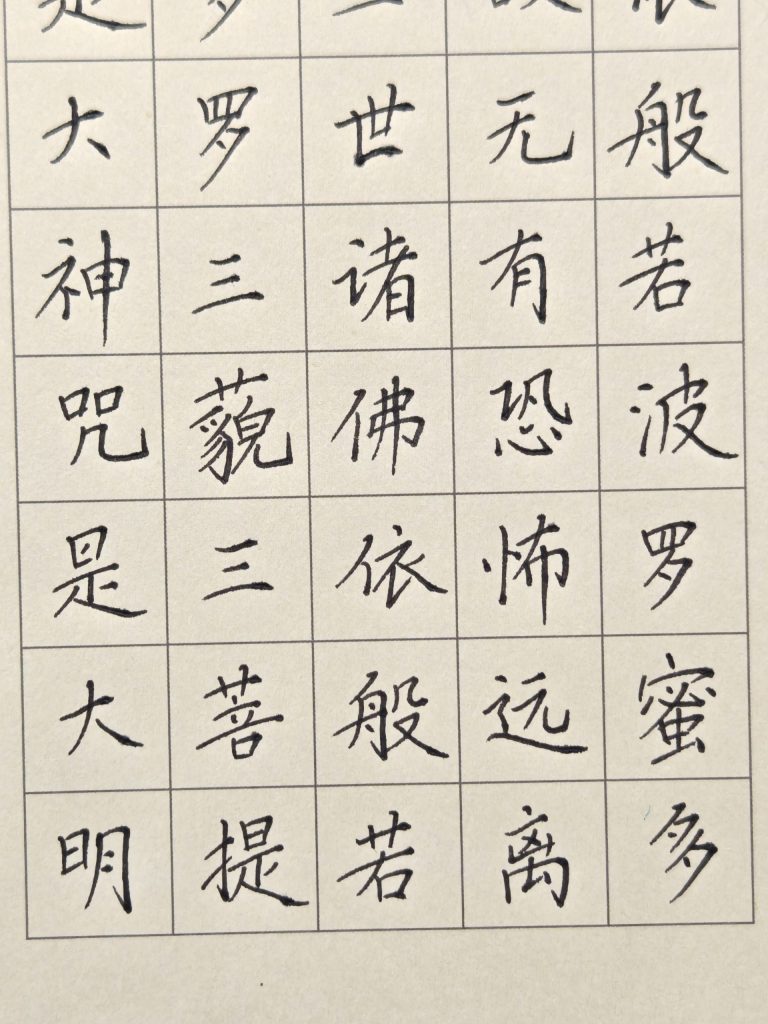 依般若波罗蜜多
故无有恐怖远离
三世诸佛依般若
多罗三藐三菩提
是大神咒是大明